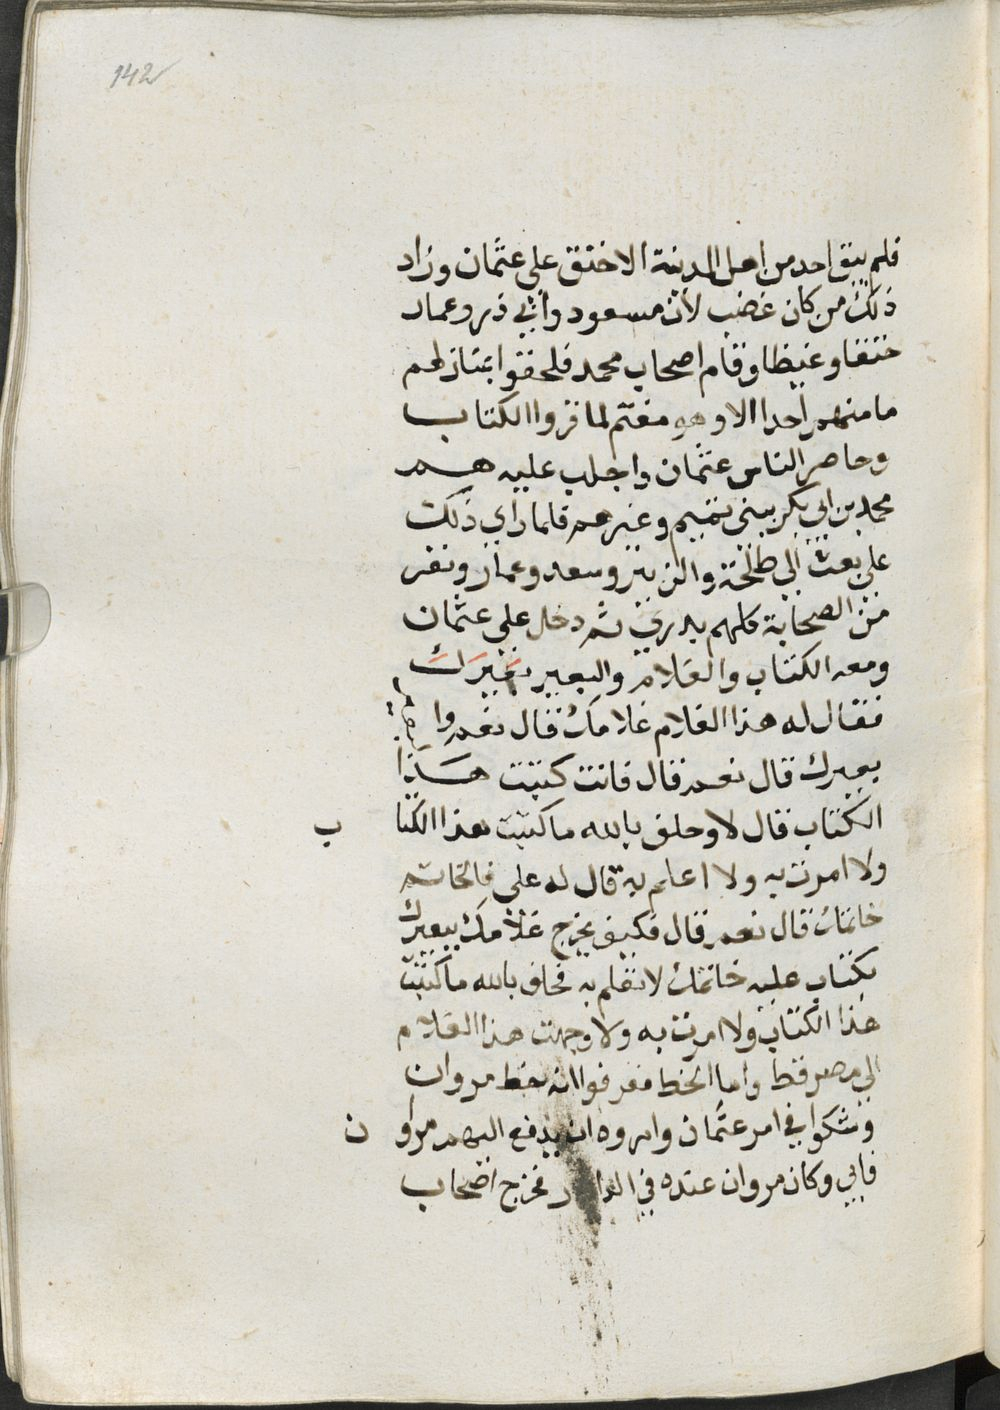 142
فلم يبق احد من اهل المدينة الا خنق علي عثمان وزاد
ذلك من كان غضب لابن مسعود وابي ذر وعمار
حنقا وغيظا وقام اصحاب محمد فلحقوا بمنازلهم
ما منهم احدا الا وهو مغتم لما قروا الكتاب
وحاصر الناس عثمان واجلب عليه هم
محمد بن ابي بكر ببني تميم وغيرهم فلما راي ذلك
علي بعث الي طلحة والزبير وسعد وعمار ونفر
من الصحابة كلهم بدري ثم دخل علي عثمان
ومعه الكتاب والغلام والبعير بَعِيرَكَ
فقال له هذا الغلام غلامك قال نعم وا
بعيرك قال نعم قال فانت كتبت هذا
الكتاب قال لا وحلف بالله ما كتبت هذا الكتا ب
ولا امرت به ولا اعلم به قال له علي فالخاتم
خاتمك قال نعم قال فكيف يخرج غلامك ببعيرك
بكتاب عليه خاتمك لا تعلم به فحلف بالله ما كتبت
هذا الكتاب ولا امرت به ولا وجهت هذا الغلام
الي مصر قط واما الخط فعرفوا انه بخط مروان
وشكوا في امر عثمان وامروه ان يدفع اليهم مروا ن
فابي وكان مروان عنده في الدار فخرج اصحاب